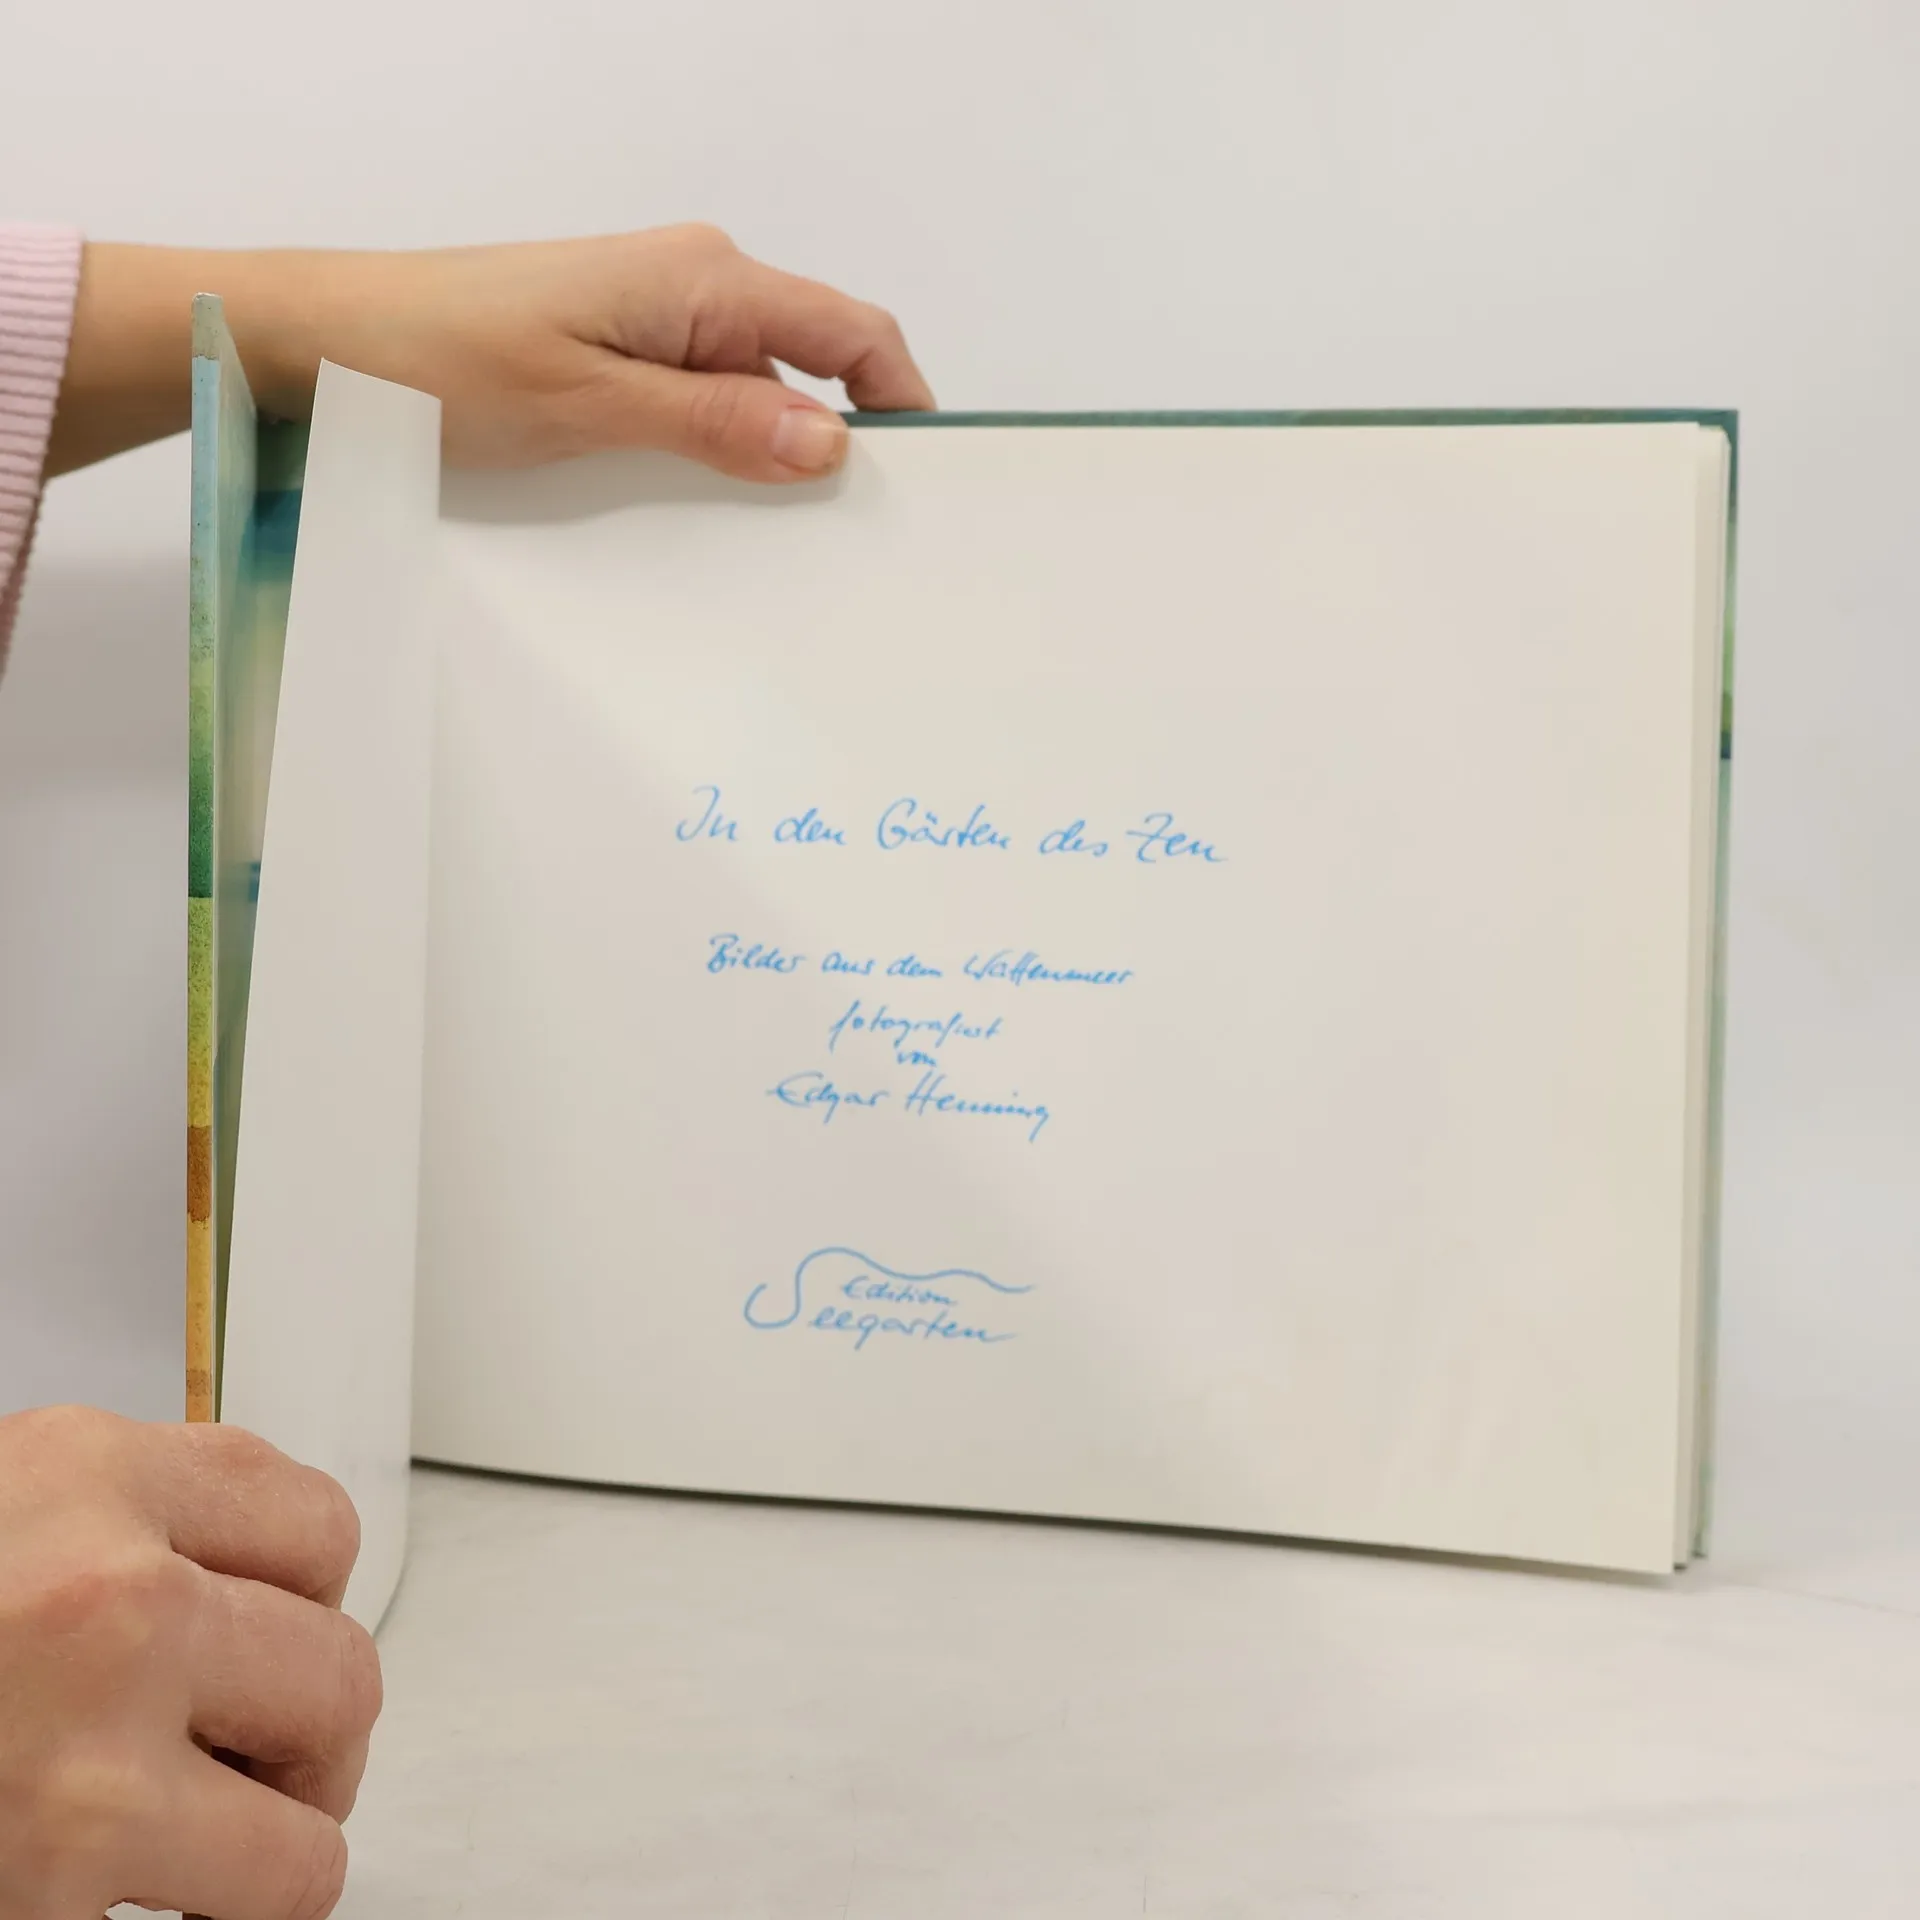 In den Gärten des Zen
Bilder aus dem Wattenmeer
fotografiert
von
Edgar Henning
Edition
Seegarten